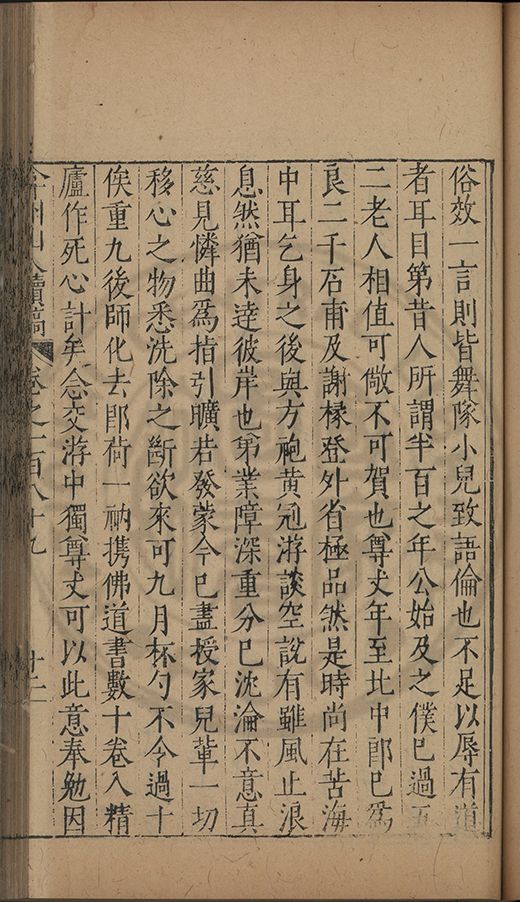 俗效一言則皆舞隊小兒致語倫也不足以辱有道
者耳目第昔人所謂半百之年公始及之僕已過五
二老人相值可僘不可賀也尊丈年至比中郎已為
良二千石甫及謝㯳登外省極品然是時尚在苦海
中耳乞身之後與方袍黄冠游談空說有雖風止浪
息然猶未達彼岸也第業障深重分已沈淪不意真
慈見憐曲爲指引曠若發蒙今已盡授家兒輩一切
移心之物悉洗除之斷欲來可九月杯勺不令過十
俟重九後師化去即荷一衲携佛道書數十卷入精
廬作死心計矣念交游中獨尊丈可以此意奉勉因
弇州山人續稿 卷之一百八十九 十二